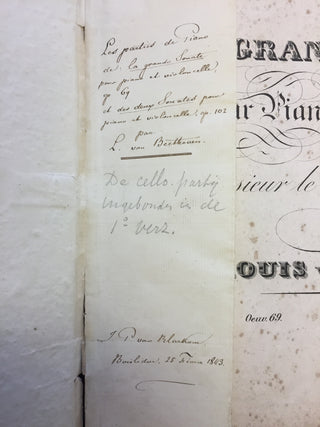 Les parties de Piano
de la grande Sonate
pour piano et violoncelle,
op 69
et des deux Sonates pour
piano et violoncelle, op. 102
par
L. van Beethoven.
De cello-partij
ingebonden in de
1e verz.
J. P. van
25 1843.
GRAN
ur Pian
sieur le
OUIS v
Oeuv. 69.